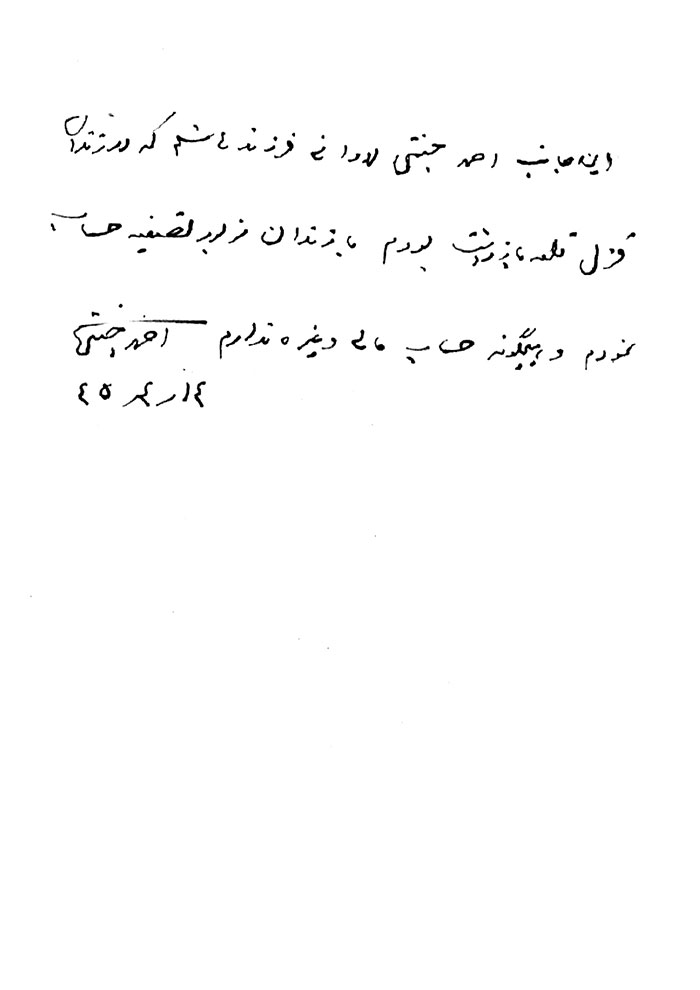 اینجانب احمد جنتی لادانی فرزند هاشم که در زندان
قزل قلعه بازداشت بودم با زندان مزبور تصفیه حساب
نمودم و هیچگونه حساب مالی و غیره ندارم احمد جنتی